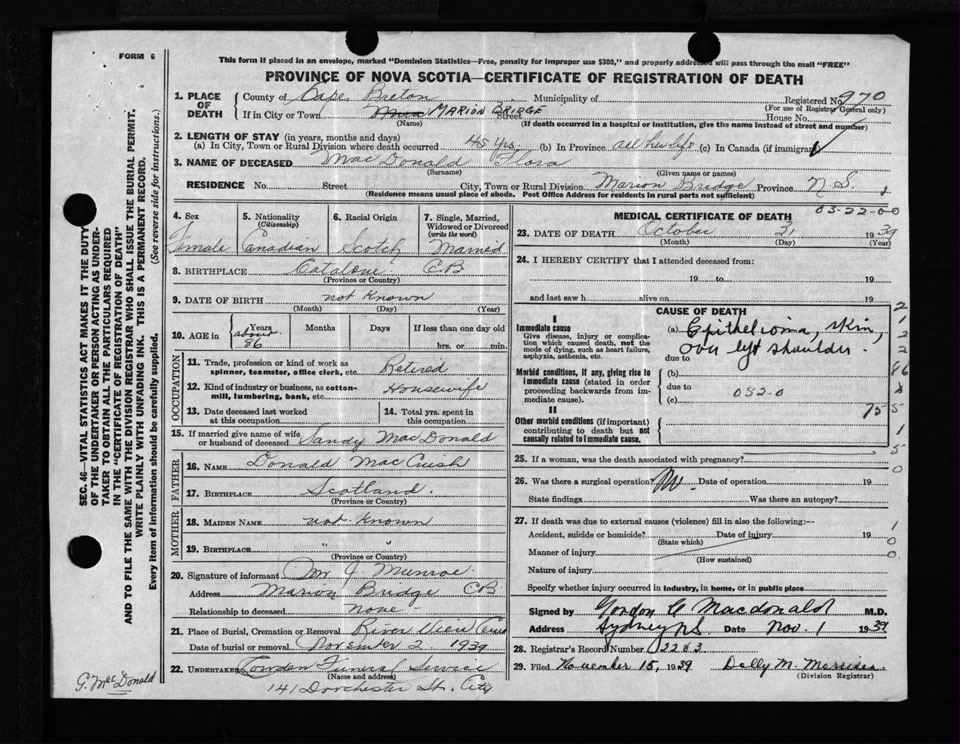 FORM 6
This form if placed in an envelope, marked "Dominion Statistics—Free, penalty for improper use $300," and properly addressed will pass through the mail "FREE"
PROVINCE OF NOVA SCOTIA—CERTIFICATE OF REGISTRATION OF DEATH
1. PLACE OF DEATH County of Cape Breton Municipality of Registered No. 970
(For use of Registrar General only)
If in City or Town MARION BRIDGE Street House No.
(Name) (If death occurred in a hospital or institution, give the name instead of street and number)
2. LENGTH OF STAY (in years, months and days)
(a) In City, Town or Rural Division where death occurred 45 Yrs. (b) In Province all her life (c) In Canada (if immigrant)
3. NAME OF DECEASED MacDonald Flora
(Surname) (Given name or names)
RESIDENCE No. Street City, Town or Rural Division Marion Bridge Province N.S.
(Residence means usual place of abode. Post Office Address for residents in rural parts not sufficient)
4. Sex 5. Nationality (Citizenship) 6. Racial Origin 7. Single, Married, Widowed or Divorced (write the word)
Female Canadian Scotch Married
8. BIRTHPLACE Catalone CB
(Province or Country)
9. DATE OF BIRTH not known
(Month) (Day) (Year)
10. AGE in Years Months Days If less than one day old
about 86 hrs. or min.
OCCUPATION
11. Trade, profession or kind of work as spinner, teamster, office clerk, etc. Retired
12. Kind of industry or business, as cotton-mill, lumbering, bank, etc. Housewife
13. Date deceased last worked at this occupation 14. Total yrs. spent in this occupation
15. If married give name of wife or husband of deceased Sandy MacDonald
FATHER
16. NAME Donald MacCuish
17. BIRTHPLACE Scotland.
(Province or Country)
MOTHER
18. MAIDEN NAME not known
19. BIRTHPLACE " "
(Province or Country)
20. Signature of informant J. Munroe.
Address Marion Bridge CB
Relationship to deceased none
21. Place of Burial, Cremation or Removal River View
Date of burial or removal November 2, 1939
22. UNDERTAKER Funeral Service
(Name and address)
141 Dorchester St. City
03-22-00
MEDICAL CERTIFICATE OF DEATH
23. DATE OF DEATH October 31 1939
(Month) (Day) (Year)
24. I HEREBY CERTIFY that I attended deceased from:
19 to 19
and last saw h alive on 19
CAUSE OF DEATH
I
Immediate cause
Give disease, injury or complication which caused death, not the mode of dying, such as heart failure, asphyxia, asthenia, etc.
(a) Epithelioma, skin, over left shoulder
due to
Morbid conditions, if any, giving rise to immediate cause (stated in order proceeding backwards from immediate cause).
(b)
due to 052-0
(c)
II
Other morbid conditions (if important) contributing to death but not causally related to immediate cause.
75
25. If a woman, was the death associated with pregnancy?
26. Was there a surgical operation? No Date of operation 19
State findings Was there an autopsy?
27. If death was due to external causes (violence) fill in also the following:—
Accident, suicide or homicide? Date of injury 19
(State which)
Manner of injury
(How sustained)
Nature of injury
Specify whether injury occurred in industry, in home, or in public place
Signed by Gordon Macdonald M.D.
Address Sydney N.S. Date Nov. 1 1939
28. Registrar's Record Number 2283
29. Filed November 15, 1939 Dolly M.
(Division Registrar)
SEC. 46—VITAL STATISTICS ACT MAKES IT THE DUTY
OF THE UNDERTAKER OR PERSON ACTING AS UNDER-
TAKER TO OBTAIN ALL THE PARTICULARS REQUIRED
IN THE "CERTIFICATE OF REGISTRATION OF DEATH"
AND TO FILE THE SAME WITH THE DIVISION REGISTRAR WHO SHALL ISSUE THE BURIAL PERMIT.
WRITE PLAINLY WITH UNFADING INK. THIS IS A PERMANENT RECORD.
Every item of information should be carefully supplied. (See reverse side for instructions.)
G. MacDonald